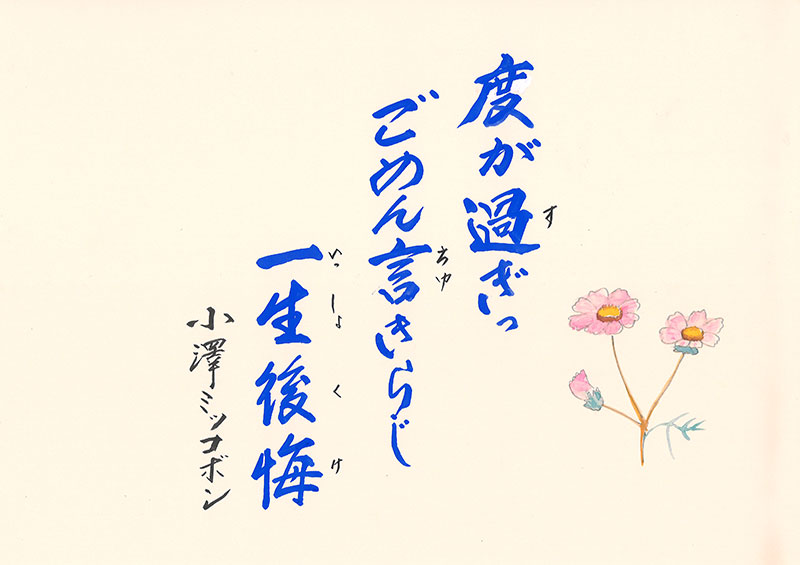 度が過ぎっ
す
ごめん言きらじ
ちゆ
一生後悔
いっしょくけ
小澤ミッコボン